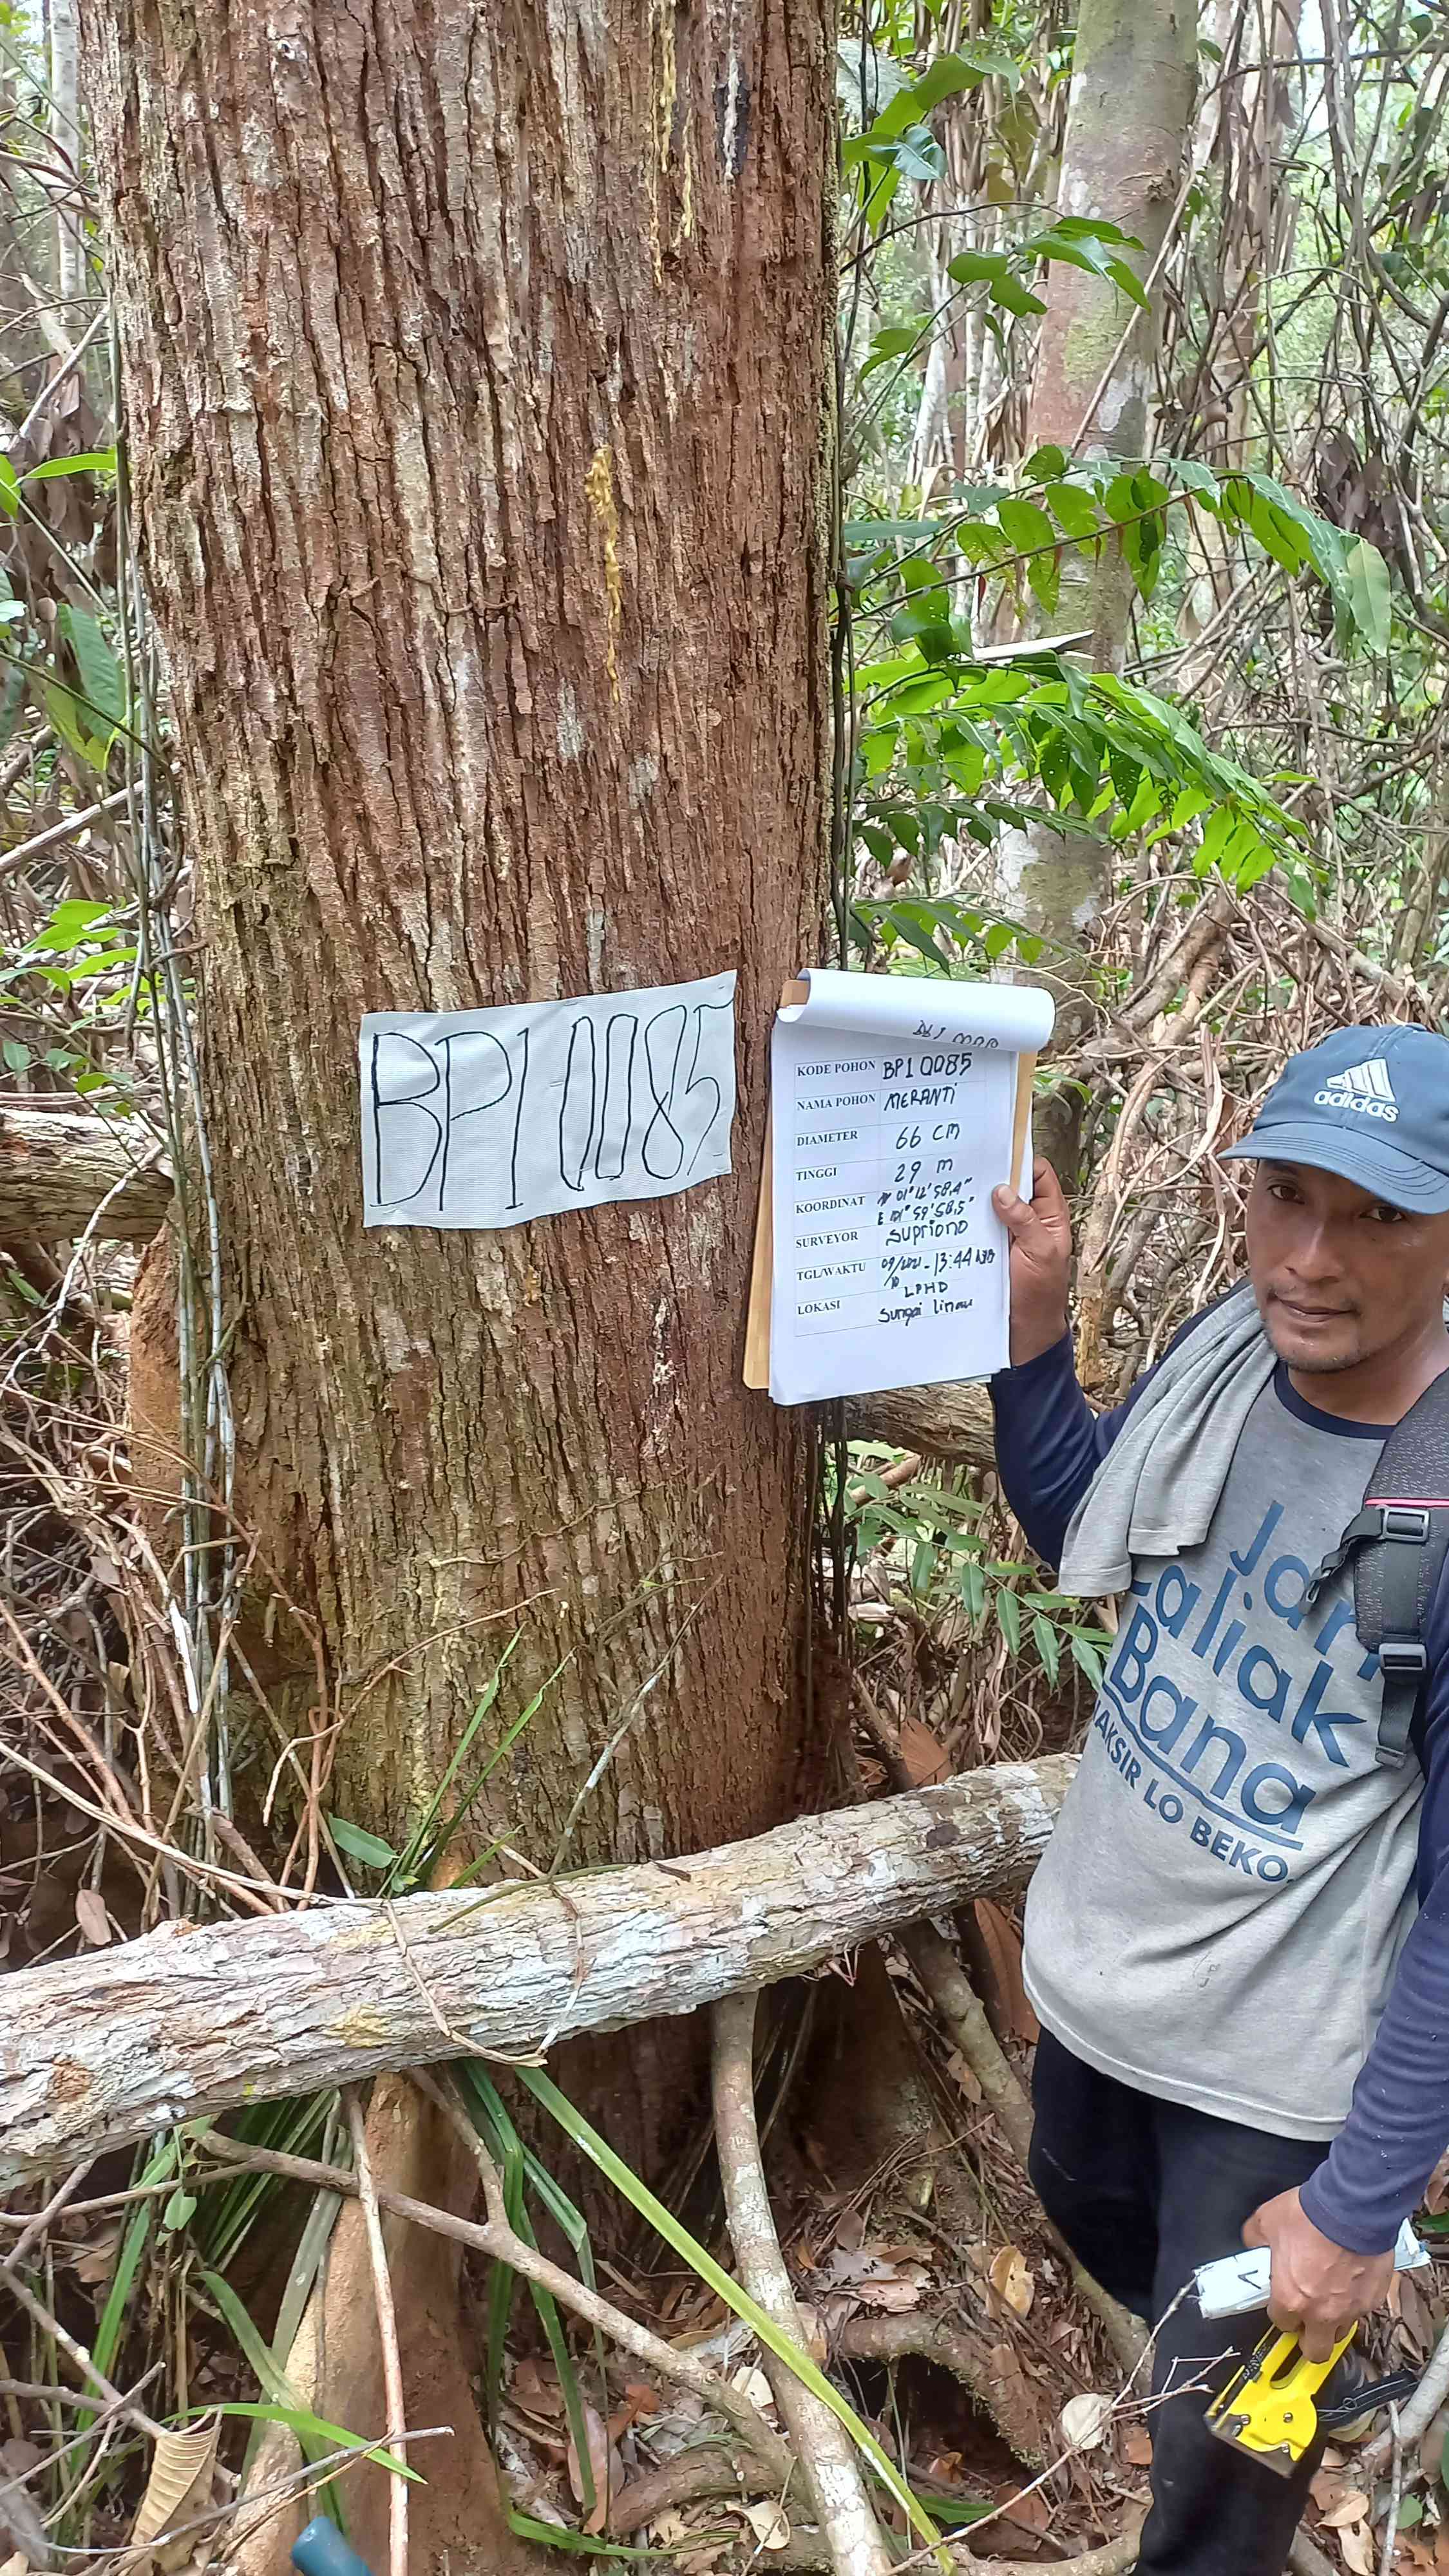 BP10085
KODE POHON BP10085
NAMA POHON MERANTI
DIAMETER 66 CM
TINGGI 29 m
KOORDINAT N 01° 12' 58,4"
E 101° 59' 58,5"
SURVEYOR Supriono
TGL/WAKTU 13:44
LOKASI LPHD
Sungai linau
adidas
Jan
Caliak
Bana
LO BEKO